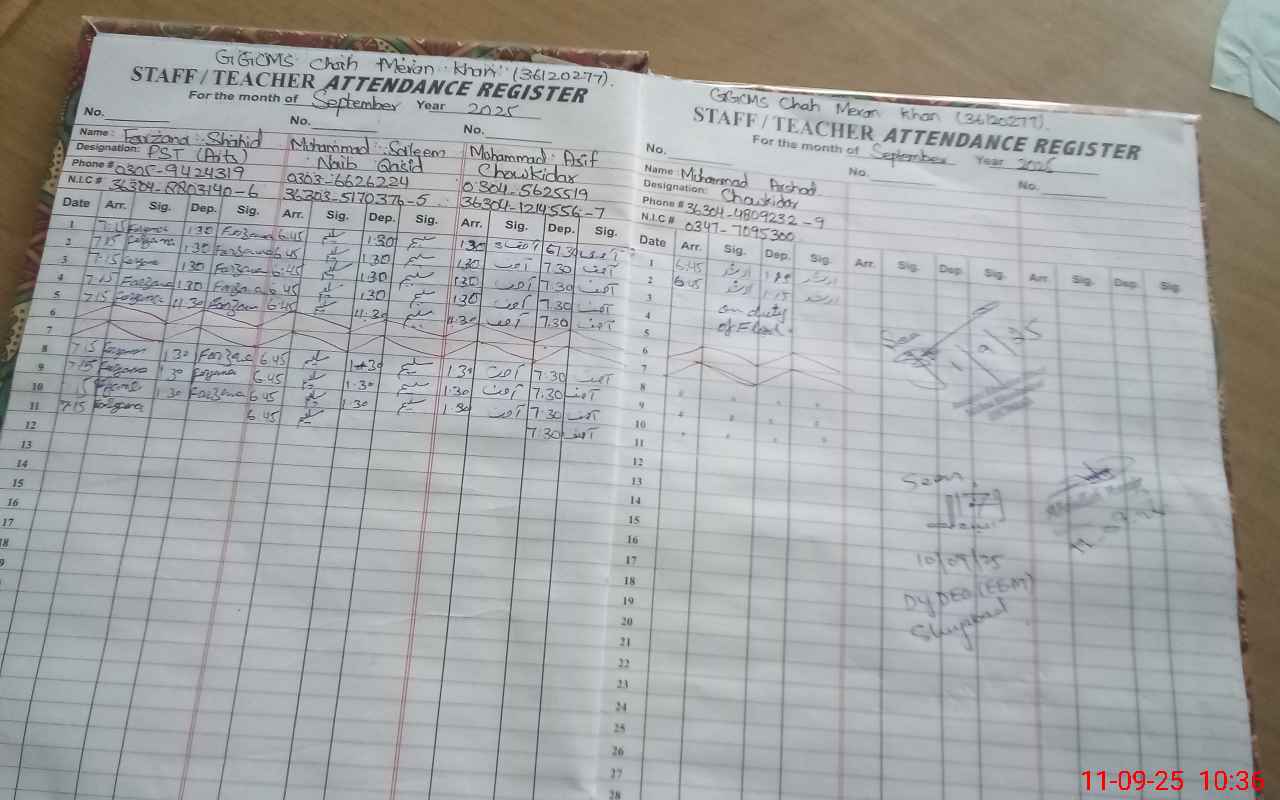 GGCMS Chah Meran Khan (36120277).
STAFF / TEACHER ATTENDANCE REGISTER
For the month of September Year 2025
No. No. No.
Name : Farzana Shahid Mohammad Saleem Mohammad Asif
Designation: PST (Arts) Naib Qasid Chowkidar
Phone # 0305-9424319 0303-6626224 0304-5625519
N.I.C # 36304-6803140-6 36303-5170376-5 36304-1214556-7
Date Arr. Sig. Dep. Sig. Arr. Sig. Dep. Sig. Arr. Sig. Dep. Sig.
1 7:15 Farzana 1:30 Farzana 6:45 سلیم 1:30 سلیم 1:30 آصف 7:30 آصف
2 7:15 Farzana 1:30 Farzana 6:45 سلیم 1:30 سلیم 1:30 آصف 7:30 آصف
3 7:15 Farzana 1:30 Farzana 6:45 سلیم 1:30 سلیم 1:30 آصف 7:30 آصف
4 7:15 Farzana 1:30 Farzana 6:45 سلیم 1:30 سلیم 1:30 آصف 7:30 آصف
5 7:15 Farzana 11:30 Farzana 6:45 سلیم 11:30 سلیم 11:30 آصف 7:30 آصف
6
7
8 7:15 Farzana 1:30 Farzana 6:45 سلیم 1:30 سلیم 1:30 آصف 7:30 آصف
9 7:15 Farzana 1:30 Farzana 6:45 سلیم 1:30 سلیم 1:30 آصف 7:30 آصف
10 Farzana 1:30 Farzana 6:45 سلیم 1:30 سلیم 1:30 آصف 7:30 آصف
11 7:15 Farzana 6:45 سلیم 7:30 آصف
12
13
14
15
16
17
18
9
GGCMS Chah Meran Khan (36120277).
STAFF / TEACHER ATTENDANCE REGISTER
For the month of September Year 2025
No. No. No.
Name : Mohammad Arshad
Designation: Chowkidar
Phone # 36304-4809232-9
N.I.C # 0347-7095300
Date Arr. Sig. Dep. Sig. Arr. Sig. Dep. Sig. Arr Sig. Dep. Sig.
1 6:45 ارشد ارشد
2 6:45 ارشد 1:15 ارشد
3
4 on duty
5 of Flood.
6
7
8 " " " "
9 " " " "
10 " " " "
11
12
13
14 Seen.
15
16
17 10/09/25
18
19 DyDEO (EEM)
20
21
22
23
24
25
26
27
28
11-09-25 10:36